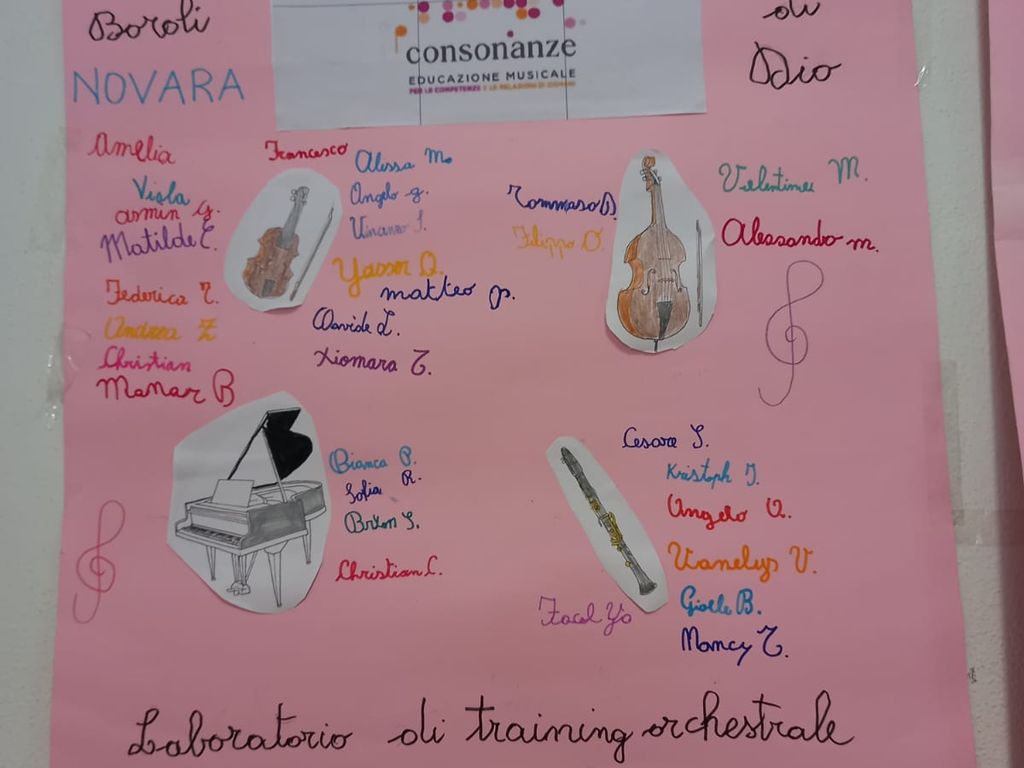 Boroli
NOVARA
consonanze
EDUCAZIONE MUSICALE
PER LE COMPETENZE E LE RELAZIONI DI DOMANI
di
Dio
Amelia
Viola
asmin G.
Matilde E.
Federica T.
Andrea Z
Christian
Manar B
Francesco
Alessa M.
Angelo G.
Yasser D.
matteo p.
Davide L.
Xiomara T.
Tommaso D.
Filippo D.
M.
Alessandro m.
Bianca P.
Sofia R.
Christian C.
Cesare S.
Kristoph J.
Angelo Q.
Vanelys V.
Gioele B.
Nancy T.
Laboratorio di training orchestrale